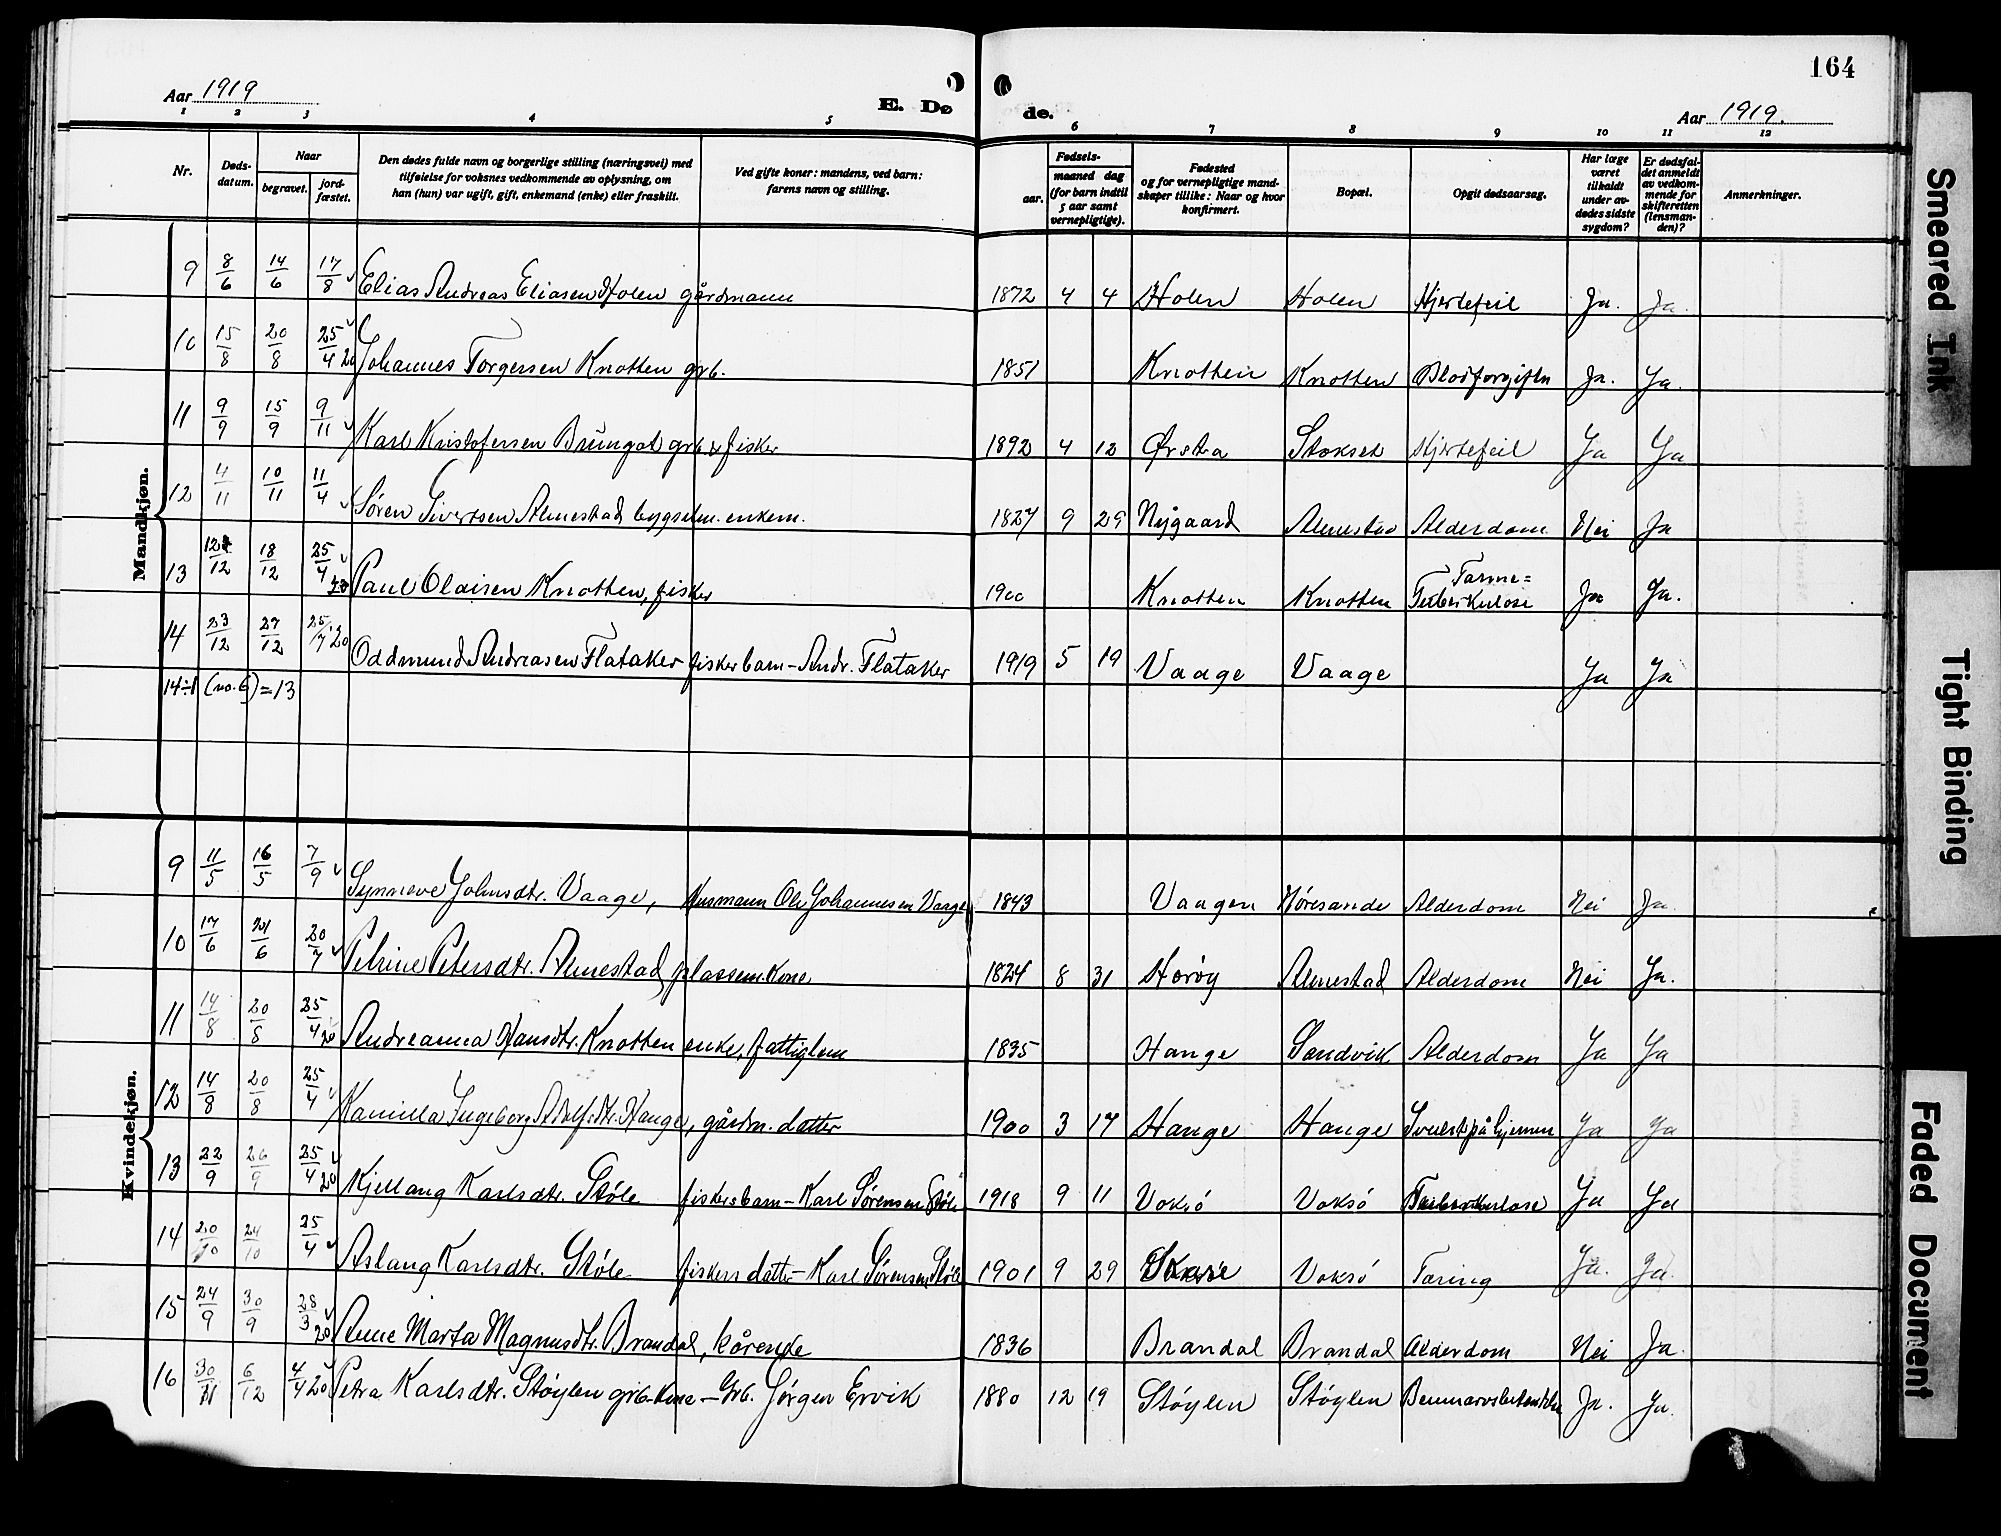 164
Aar 1919
E. Dø
de.
Aar 1919.
1 2 3 4 5 6 7 8 9 10 11 12
Nr.
Dødsdatum.
Naar
begravet.
jordfæstet.
Den dødes fulde navn og borgerlige stilling (næringsvei) med
tilføielse for voksnes vedkommende av oplysning, om
han (hun) var ugift, gift, enkemand (enke) eller fraskilt.
Ved gifte koner: mandens, ved barn:
farens navn og stilling.
Fødsels-
aar.
maaned dag
(for barn indtil
5 aar samt
vernepligtige).
Fødested
og for vernepligtige mand-
skaper tillike: Naar og hvor
konfirmert.
Bopæl.
Opgit dødsaarsag.
Har læge
været
tilkaldt
under av-
dødes sidste
sygdom?
Er dødsfal-
det anmeldt
av vedkom-
mende for
skifteretten
(lensman-
den)?
Anmerkninger.
Mandkjøn.
9 8/6 14/6 17/8 Elias Andreas Eliasen Holen gårdmann 1872 4 4 Holen Holen Hjertefeil Ja. Ja.
10 15/8 20/8 25/4 20 Johannes Torgersen Knotten grb. 1851 Knotten Knotten Blodforgiftn Ja. Ja.
11 9/9 15/9 9/11 Karl Kristofersen Brungot grb & fisker 1892 4 12 Ørsta Stokset Hjertefeil Ja Ja
12 4/11 10/11 11/4 Søren Sivertsen Almestad bygselm. enkem. 1827 9 29 Nygaard Almestad Alderdom Nei Ja
13 12/12 18/12 25/4 20 Paul Olaisen Knotten, fisker 1900 Knotten Knotten Tarme=
Tuberkulose Ja Ja.
14 23/12 27/12 25/7 20 Oddmund Andreasen Flataker fiskerbarn - Andr. Flataker 1919 5 19 Vaage Vaage Ja Ja
14÷1 (no. 6) = 13
Kvindekjøn.
9 11/5 16/5 7/9 Synneve Johnsdtr. Vaage, Husmann Ole Johannesen Vaage 1843 Vaagen Høresande Alderdom Nei Ja.
10 17/6 21/6 20/7 Petrine Petersdtr. Almestad plassem. Kone 1824 8 31 Harøy Almestad Alderdom Nei Ja.
11 14/8 20/8 25/4 20 Andreanna Hansdtr. Knotten enke, fattiglem 1835 Hauge Sandvik Alderdom Ja Ja
12 14/8 20/8 25/4 Kamilla Ingeborg Adolfsdtr. Hauge, gårdm. datter 1900 3 17 Hauge Hauge Svulst på hjernen Ja Ja
13 22/9 26/9 25/4 20 Kjellaug Karlsdtr. Støle fiskerbarn - Karl Sørensen Støle 1918 9 11 Voksø Voksø Tuberkulose Ja Ja
14 20/10 24/10 25/4 Aslaug Karlsdtr. Støle fiskers datter - Karl Sørensen Støle 1901 9 29 Voksø Taring Ja. Ja.
15 24/9 30/9 28/3 20 Anne Marta Magnusdtr. Brandal, kårende 1836 Brandal Brandal Alderdom Nei Ja.
16 30/11 6/12 4/4 20 Petra Karlsdtr. Støylen grb. kone - Grb. Jørgen Ervik 1880 12 19 Støylen Støylen Ja. Ja.
Smeared Ink
Tight Binding
Faded Document